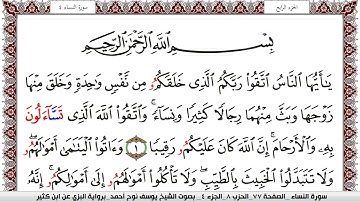 الجزء الرابع سورة النساء ٤
بِسْمِ ٱللَّهِ ٱلرَّحْمَٰنِ ٱلرَّحِيمِ
يَٰأَيُّهَا ٱلنَّاسُ ٱتَّقُوا۟ رَبَّكُمُ ٱلَّذِى خَلَقَكُمُۥ مِن نَّفْسٍ وَٰحِدَةٍ وَخَلَقَ مِنْهَا
زَوْجَهَا وَبَثَّ مِنْهُمَا رِجَالًا كَثِيرًا وَنِسَآءً ۚ وَٱتَّقُوا۟ ٱللَّهَ ٱلَّذِى تَسَّآءَلُونَ
بِهِۦ وَٱلْأَرْحَامَ ۚ إِنَّ ٱللَّهَ كَانَ عَلَيْكُمُۥ رَقِيبًا ١ وَءَاتُوا۟ ٱلْيَتَٰمَىٰ أَمْوَٰلَهُمُۥ ۖ
وَلَا تَتَبَدَّلُوا۟ ٱلْخَبِيثَ بِٱلطَّيِّبِ ۖ وَلَا تَأْكُلُوا۟ أَمْوَٰلَهُمُۥ إِلَىٰ أَمْوَٰلِكُمُۥ ۚ إِنَّهُۥ
سورة النساء . الصفحة ٧٧ . الحزب ٨ . الجزء ٤ . بصوت الشيخ يوسف نوح أحمد . برواية البزي عن ابن كثير